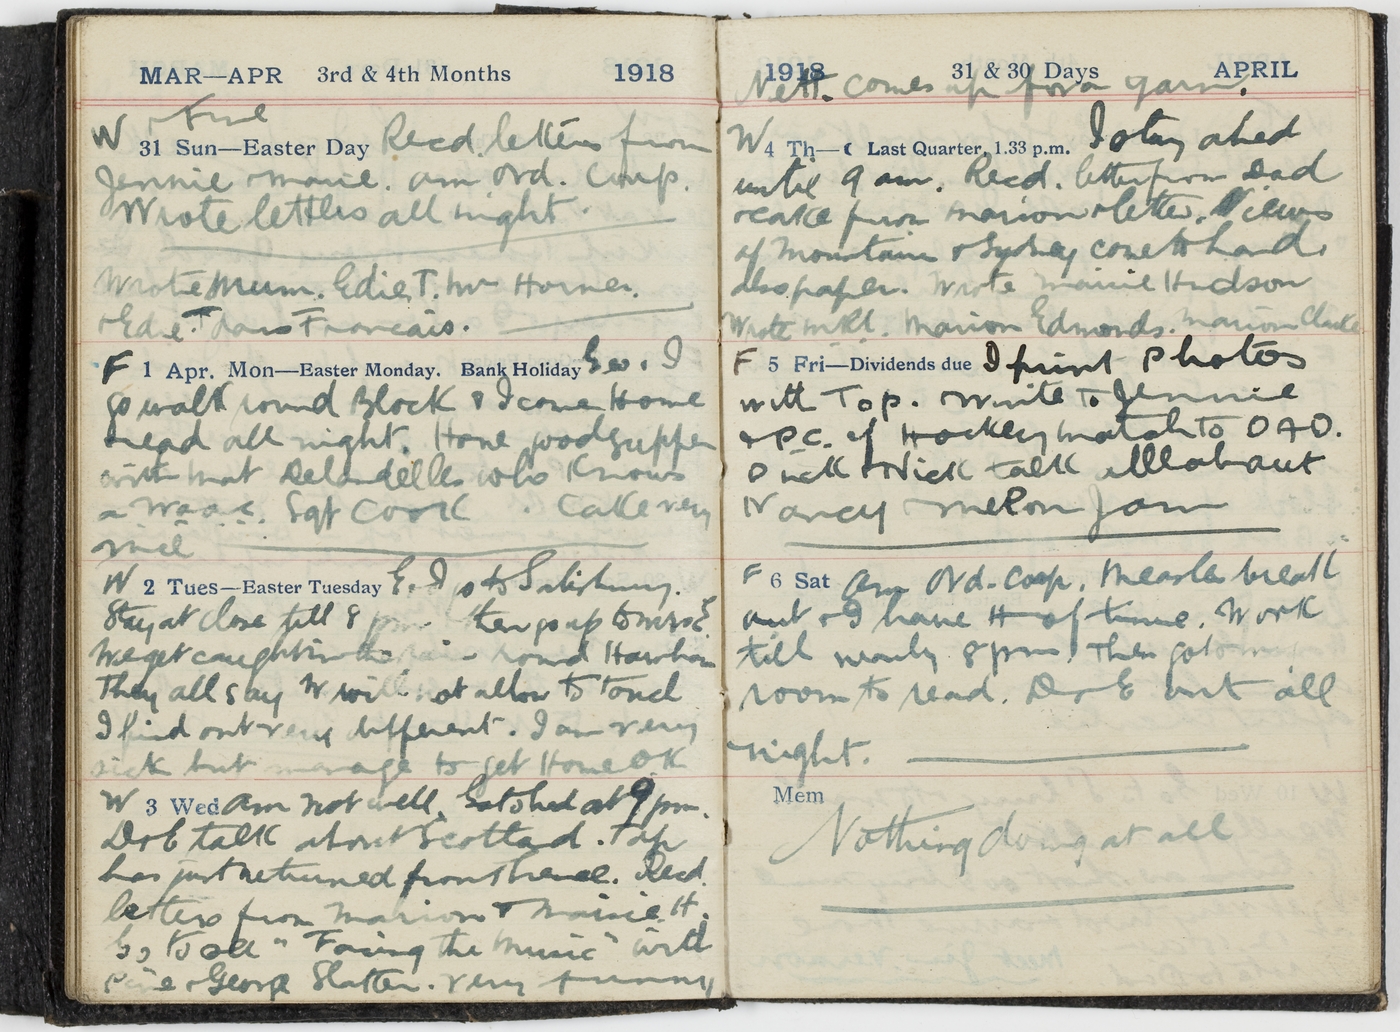 MAR—APR 3rd & 4th Months 1918
W Fine
31 Sun—Easter Day Recd. letters from
Jennie & Marie. am Ord. Corp.
Wrote letters all night.
Wrote Mum. Edie T. Mrs Horner.
& Edie T dans Francais.
F 1 Apr. Mon—Easter Monday. Bank Holiday Geo. I
go walk round Block & I come Home
& read all night. Have good supper
with mat who Knows
a Waac. Sgt Cook. Cake very
nice
W 2 Tues—Easter Tuesday E. I go to Salisbury.
Stay at close till 8 pm. then go up to Mrs E.
We get caught in the rain round
They all say W will not allow to touch
I find out very different. I am very
sick but manage to get Home OK
W 3 Wed am not well. Got to bed at 9 pm.
D & E talk about Scotland. Top
has just returned from thence. Recd.
letters from Marion & Maisie H.
Go to see "Facing the Music" with
& George Slatter. very funny
1918 31 & 30 Days APRIL
Nett. comes up for a yarn.
W 4 Th—☾ Last Quarter, 1.33 p.m. I stay abed
until 9 am. Recd. letter from Dad
& cake from Marion & letter. Views
of Mountain & Sydney come to hand.
also paper. Wrote Maisie Hudson
Wrote Marion Edmonds. Marion Clarke
F 5 Fri—Dividends due I print Photos
with Top. Write to Jennie
& P.C. of Hockey match to DAD.
Dick & Nick talk all about
Nancy Melon Jam
F 6 Sat am Ord-Corp. Measles break
out & I have H— of time. Work
till nearly 8 pm. Then go to my
room to read. D & E out all
night.
Mem
Nothing doing at all